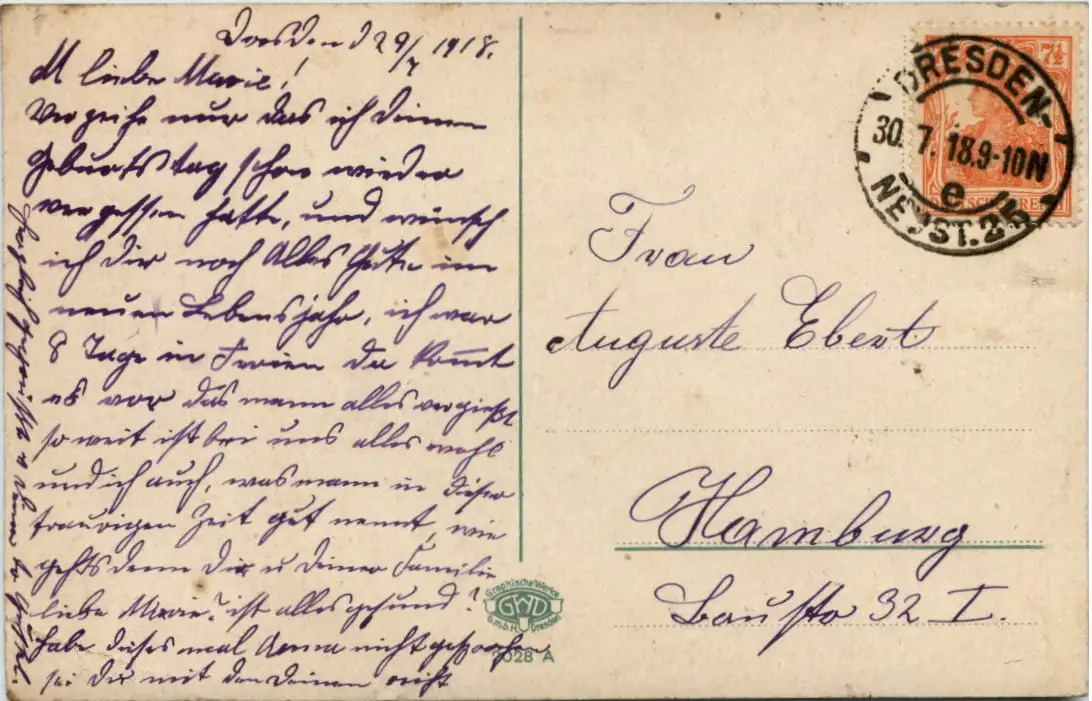 Dresden d 29/7 1918.
M liebe Marie!
Verzeihe nur das ich deinen
Geburtstag schon wieder
vergessen hatte, und wünsch
ich dir noch Alles Gute im
neuen Lebensjahr, ich war
8 Tage in Ferien da kommt
es vor das mann alles vergießt
so weit ist bei uns alles wohl
und ich auch, was mann in dieser
traurigen Zeit gut nennt, wie
gehts denn Dir u deiner Familie
liebe Marie? ist alles gesund?
habe dieses mal Anna nicht gesprochen
sei Dir mit den Deinen
herzlich gegrüßt
DRESDEN-
30. 7. 18.9-10N
e
NEUST. 25
7½
Frau
Auguste Ebert
Hamburg
Baustr 32 I.
Graphische Werke
GWD
G.m.b.H. Dresden
2028 A